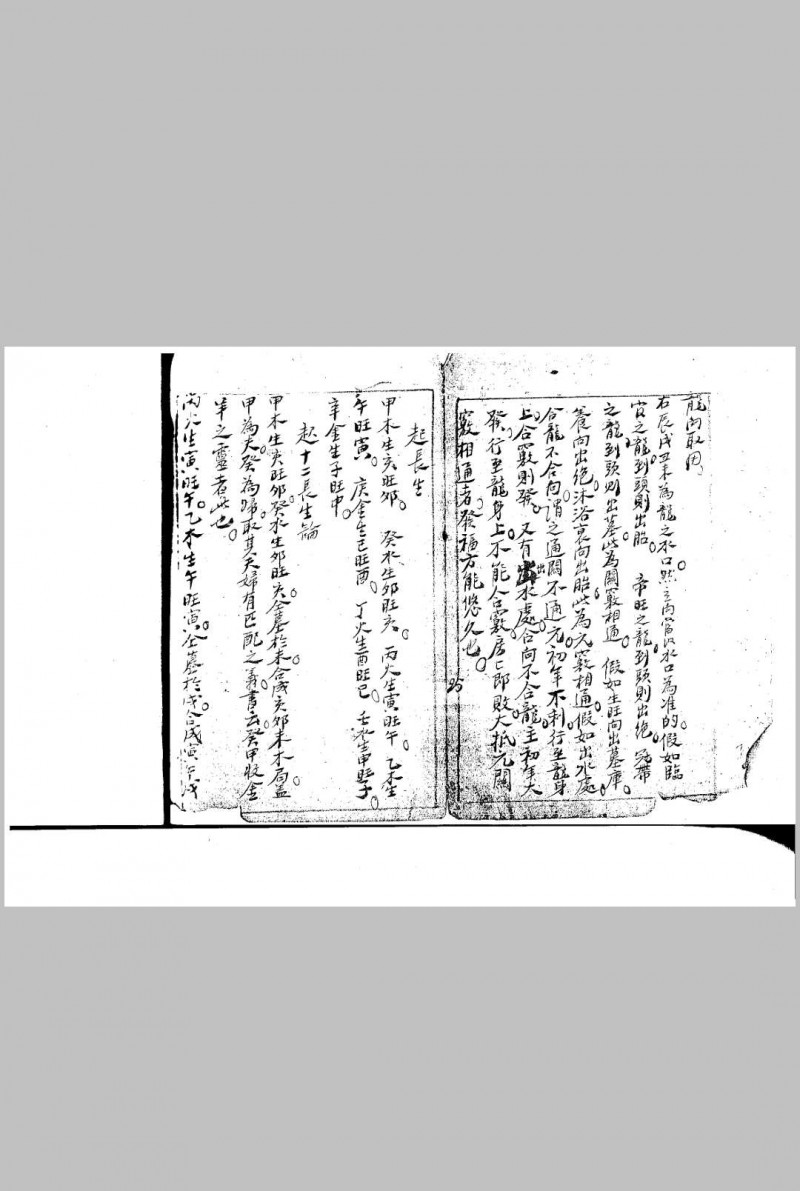 龍向取用
右辰戌丑未為龍之水口然立向當以水口為准的假如臨
官之龍到頭則出胎　帝旺之龍到頭則出絶　冠帶
之龍到頭則出墓此為關竅相通　假如生旺向出墓庫
養向出絶沐浴衰向出胎此為元竅相通假如出水處
合龍不合向謂之通關不通元初年不利行至龍身
上合竅則發　又有出水處合向不合龍主初年大
發行至龍身上不能合竅居之即敗大抵元關
竅相通者發福方能悠久也
25
起長生
甲木生亥旺卯　癸水生卯旺亥　丙火生寅旺午　乙木生
午旺寅　庚金生巳旺酉　丁火生酉旺巳　壬水生申旺子
辛金生子旺申
起十二長生論
甲木生亥旺卯癸水生卯旺亥仝墓於未合成亥卯未木局盖
甲為夫癸為婦取其夫婦有匹配之義書云癸甲收金
羊之靈者此也
丙火生寅旺午乙木生午旺寅仝墓於戌合成寅午戌